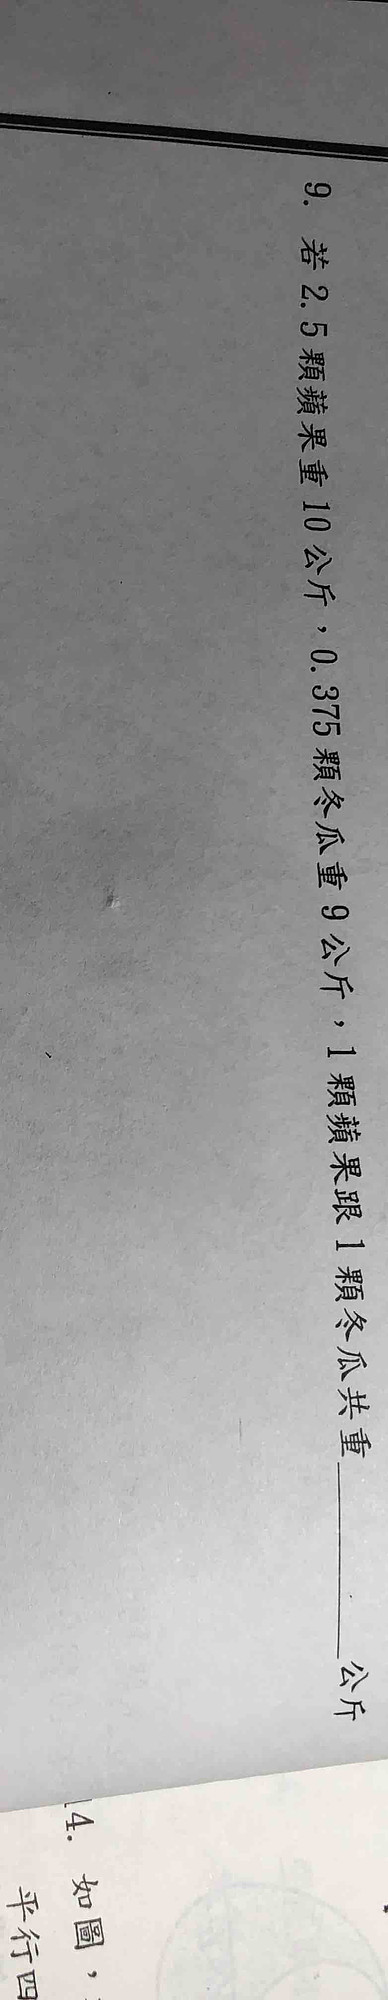 9. 若2.5顆蘋果重10公斤，0.375顆冬瓜重9公斤，1顆蘋果跟1顆冬瓜共重＿＿＿＿公斤
14. 如圖，
平行四